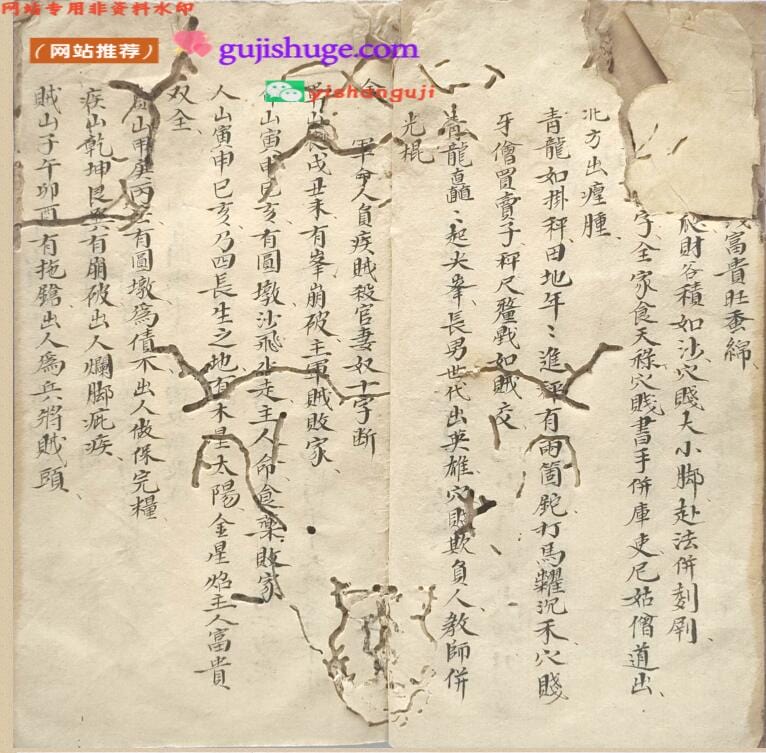 网站专用非资料水印
（网站推荐）
gujishuge.com
yishanguji
富貴旺蚕綿
財谷積如沙穴賤大小脚赴法併刻剮
字全家食天祿穴賤書手併庫吏尼姑僧道出
北方出瘟腫
青龍如掛秤田地年〻進秤有兩箇鉈打馬糶沉禾穴賤
牙僧買賣子秤尺釐戥如賊交
青龍矗〻起尖峯長男世代出英雄穴賤欺負人教師併
光棍
軍命人負疾賊殺官妻奴十字断
戌丑未有峯崩破主軍賊敗家
山寅申巳亥有圓墩沙飛水走主人命食藥敗家
人山寅申巳亥乃四長生之地有木星太陽金星焰主人富貴
双全
山甲庚丙壬有圓墩為債不出人做保完糧
疾山乾坤艮巽有崩破出人爛脚疵疾
賊山子午卯酉有拖鎗出人為兵將賊頭